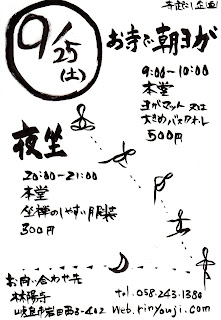 寺起こし企画
9/25
(土)
お寺で朝ヨガ
9:00-10:00
本堂
ヨガマット又は
大きめバスタオル
500円
夜坐
20:00-21:00
本堂
坐禅のしやすい服装
300円
お問い合わせ先
林陽寺
岐阜市岩田西3-402
tel.058-243-1380
web.rinyouji.com